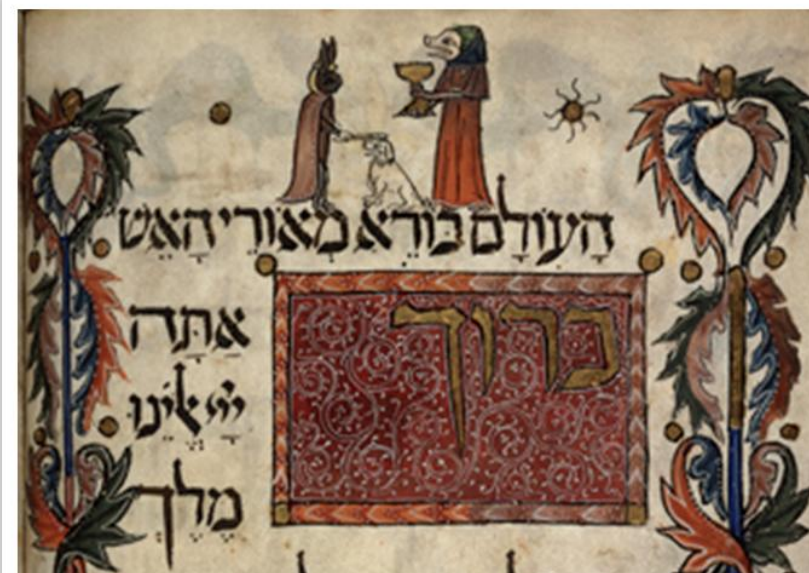 הָעוֹלָם בּוֹרֵא מְאוֹרֵי הָאֵשׁ
ברוך אַתָּה
יְיָ
מֶלֶךְ